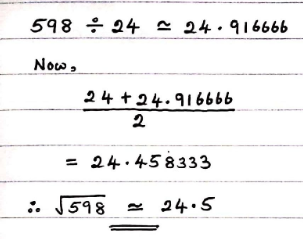 598 ÷ 24 ≃ 24.916666
Now,
24 + 24.916666
2
= 24.458333
∴ √598 ≃ 24.5